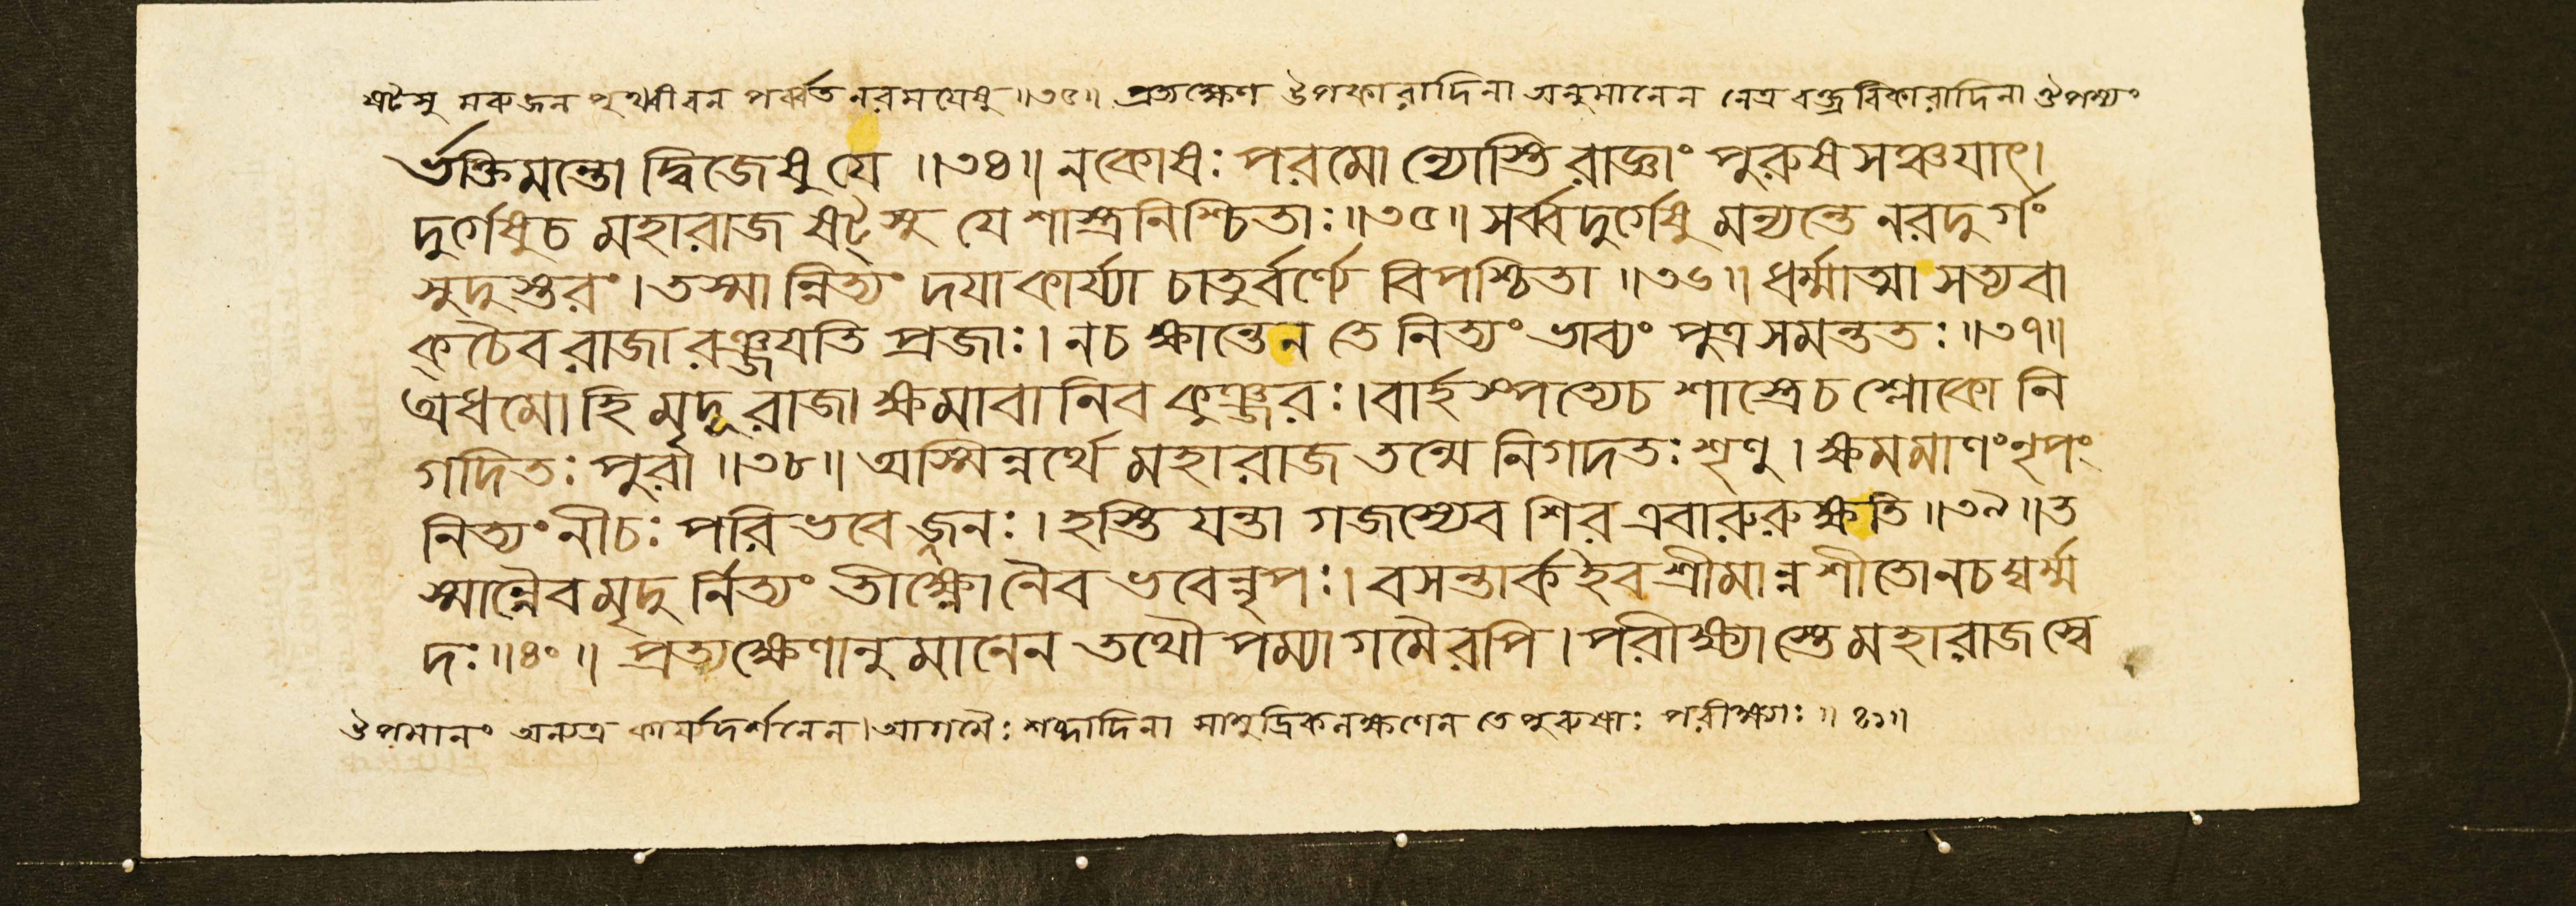 ষট্সু মরুজল পৃথ্বীবন পর্ব্বত নরময়েষু ॥৩৫॥ প্রত্যক্ষেণ উপকারাদিনা অনুমানেন নেত্র বক্ত্র বিকারাদিনা ঔপম্যং
র্ভক্তিমন্তো দ্বিজেষু যে ॥৩৪॥ ন কোষঃ পরমো ন্যোস্তি রাজ্ঞাং পুরুষ সঞ্চয়াৎ।
দুর্গেষু চ মহারাজ ষট্সু যে শাস্ত্রনিশ্চিতাঃ ॥৩৫॥ সর্ব্বদুর্গেষু মন্যন্তে নরদুর্গং
সুদুস্তরং। তস্মান্নিত্যং দয়া কার্য্যা চাতুর্বর্ণ্যে বিপশ্চিতা ॥৩৬॥ ধর্ম্মাত্মা সত্যবা
ক্ চৈব রাজা রঞ্জয়তি প্রজাঃ। ন চ ক্ষান্তেন তে নিত্যং ভাব্যং পুত্র সমন্ততঃ ॥৩৭॥
অধমো হি মৃদূ রাজা ক্ষমাবানিব কুঞ্জরঃ। বার্হস্পত্যে চ শাস্ত্রে চ শ্লোকো নি
গদিতঃ পুরা ॥৩৮॥ অস্মিন্নর্থে মহারাজ তন্মে নিগদতঃ শৃণু। ক্ষমমাণং নৃপং
নিত্যং নীচঃ পরিভবেজ্জনঃ। হস্তি যন্তা গজস্যেব শির এবারুরুক্ষতি ॥৩৯॥ ত
স্মান্নৈব মৃদু র্নিত্যং তীক্ষ্ণো নৈব ভবেন্নৃপঃ। বসন্তার্ক ইব শ্রীমান্ন শীতো ন চ ঘর্ম্ম
দঃ ॥৪০॥ প্রত্যক্ষেণানুমানেন তথৌপম্যাগমৈরপি। পরীক্ষ্যাস্তে মহারাজ স্বে
ঔপমানং অন্যত্র কার্যদর্শনেন। আগমৈঃ শব্দাদিনা সামুদ্রিকলক্ষণেন তে পুরুষাঃ পরীক্ষ্যাঃ ॥ ৪১॥